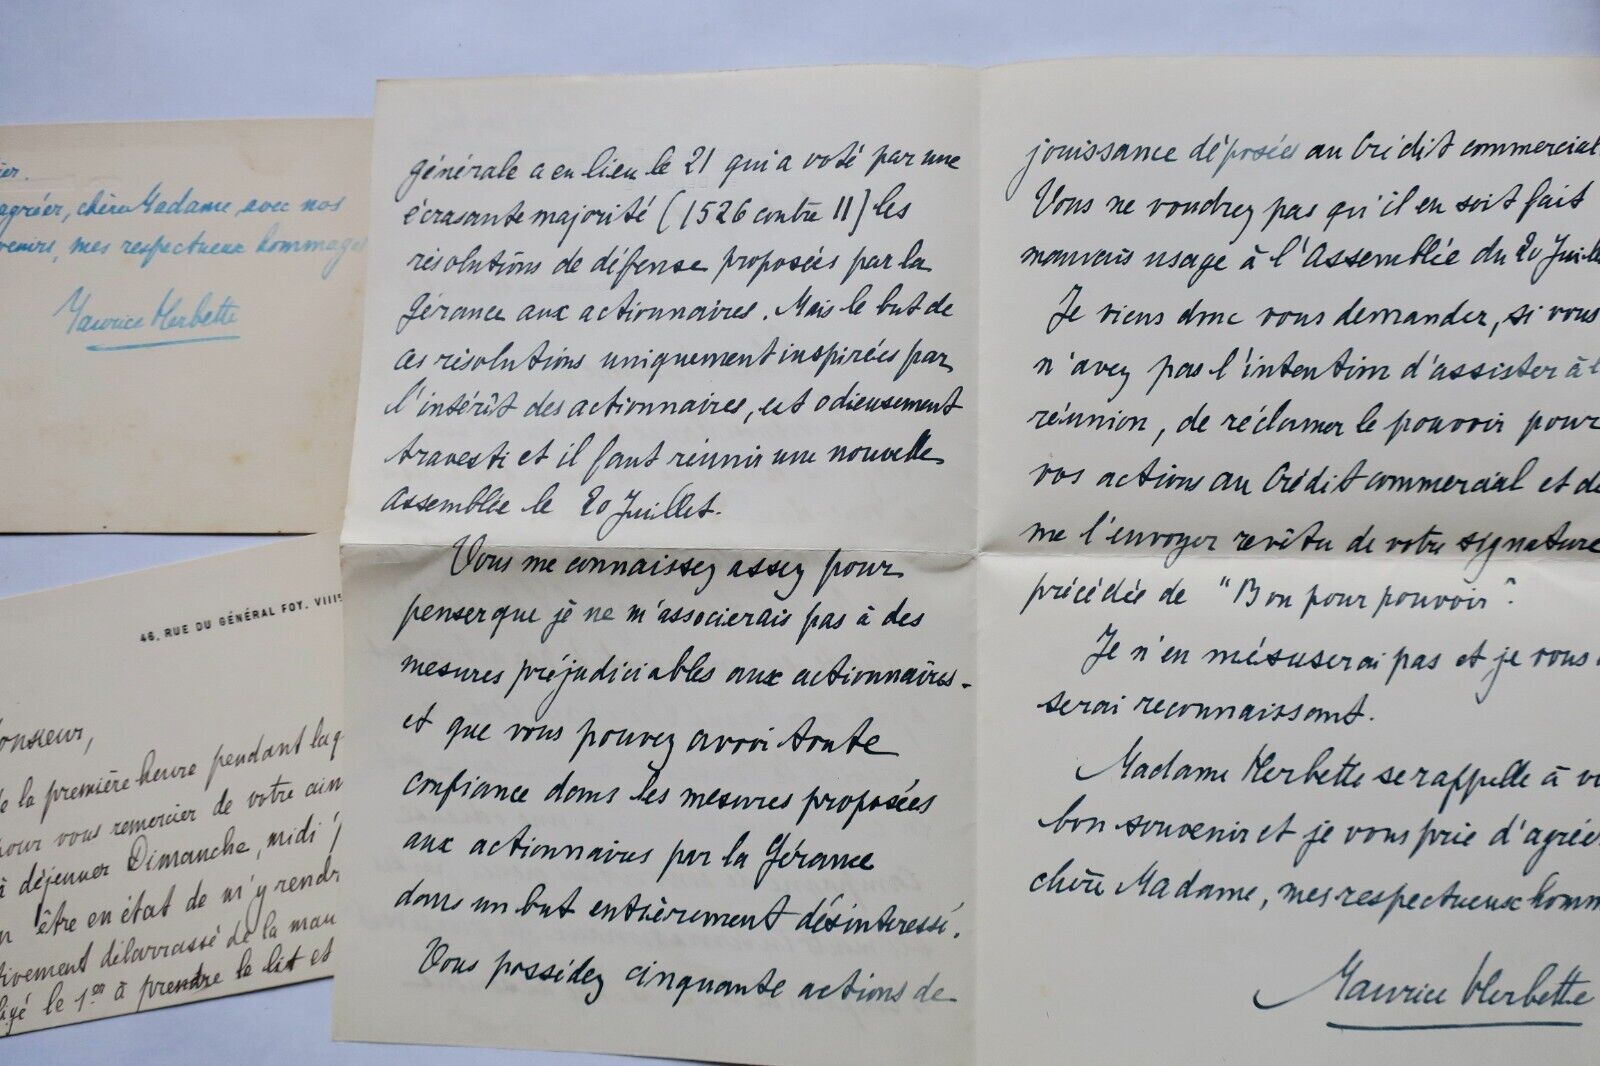 ier.
agréer, chère Madame, avec nos
venirs, mes respectueux hommages
Maurice Herbette
46, RUE DU GÉNÉRAL FOY. VIII
onsieur,
e la première heure pendant laq
pour vous remercier de votre aim
à déjeuner Dimanche, midi
n être en état de m'y rendr
tivement débarrassé de la mau
le 1er à prendre le lit et
générale a eu lieu le 21 qui a voté par une
écrasante majorité (1526 contre 11) les
résolutions de défense proposées par la
Gérance aux actionnaires. Mais le but de
ces résolutions uniquement inspirées par
l'intérêt des actionnaires, est odieusement
travesti et il faut réunir une nouvelle
assemblée le 20 Juillet.
Vous me connaissez assez pour
penser que je ne m'associerais pas à des
mesures préjudiciables aux actionnaires -
et que vous pouvez avoir toute
confiance dans les mesures proposées
aux actionnaires par la Gérance
dans un but entièrement désintéressé.
Vous possédez cinquante actions de
jouissance déposées au Crédit commercial.
Vous ne voudrez pas qu'il en soit fait
mauvais usage à l'Assemblée du 20 Juille
Je viens donc vous demander, si vous
n'avez pas l'intention d'assister à l
réunion, de réclamer le pouvoir pour
vos actions au Crédit commercial et de
me l'envoyer revêtu de votre signature
précédée de "Bon pour pouvoir".
Je n'en mésuserai pas et je vous
serai reconnaissant.
Madame Herbette se rappelle à vo
bon souvenir et je vous prie d'agrée
chère Madame, mes respectueux homm
Maurice Herbette